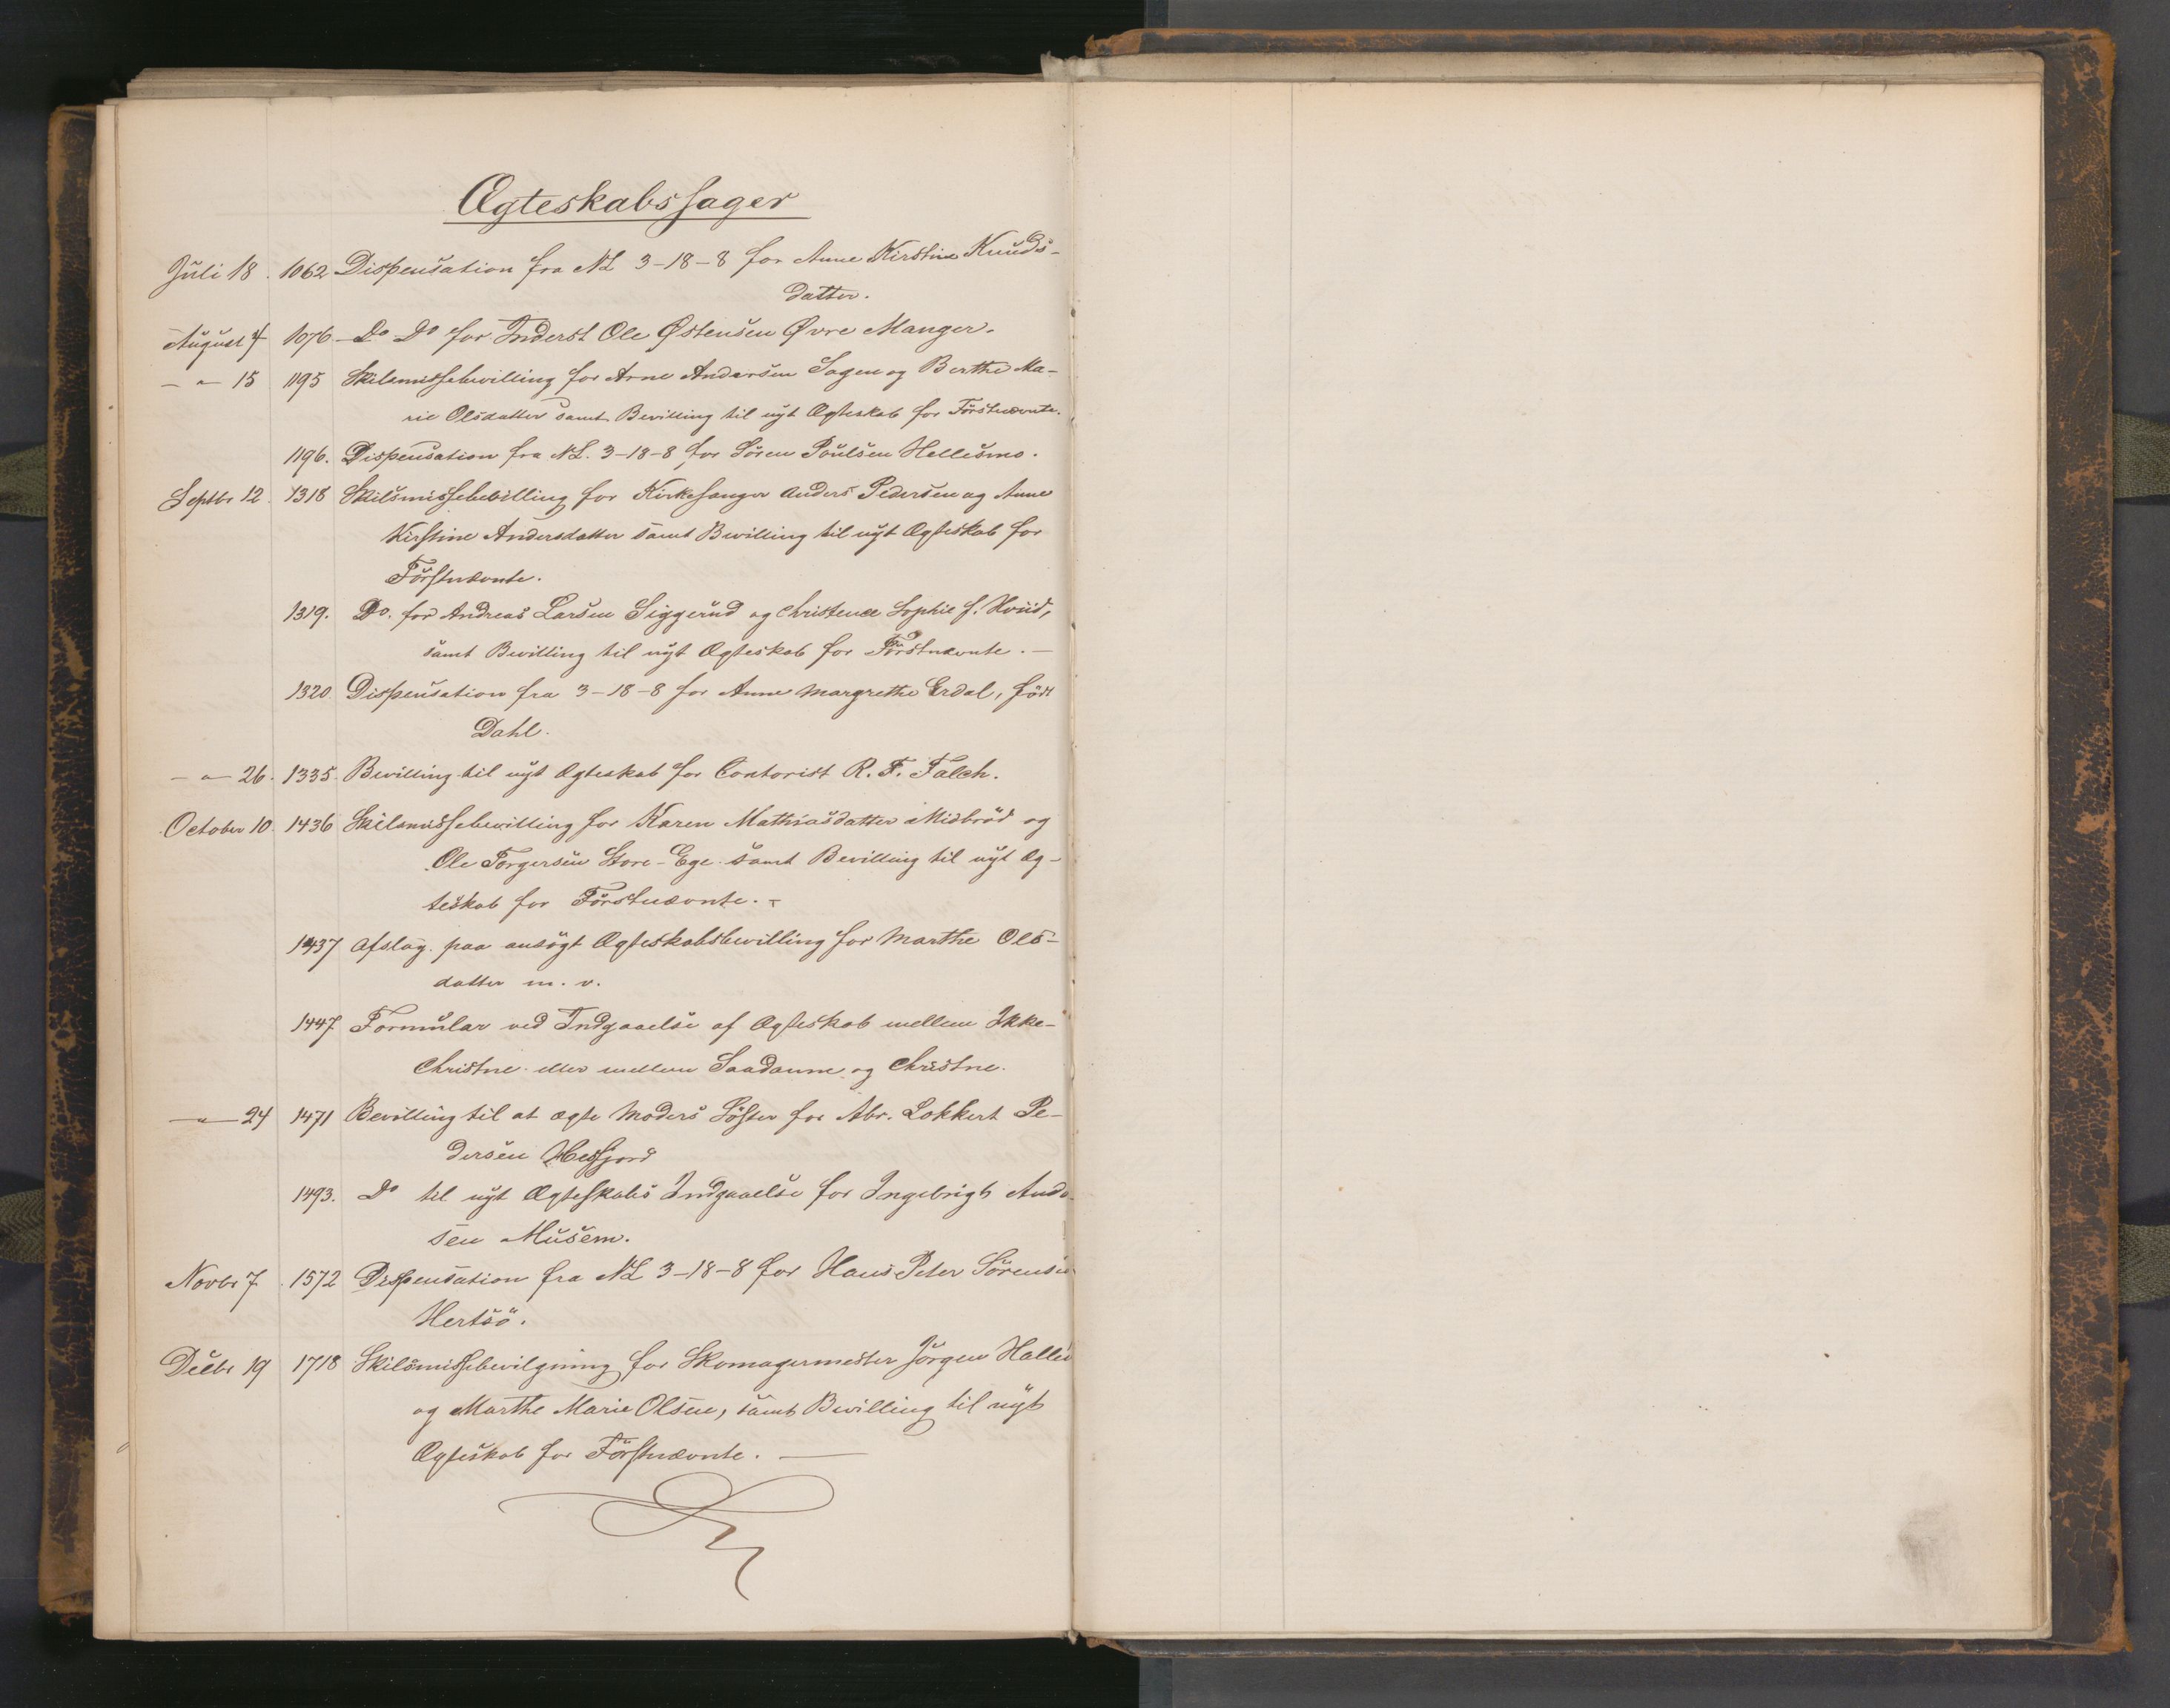 Ægteskabssager
Juli 18. 1062 Dispensation fra NL 3-18-8 for Anne Kirstine Knuds-
datter.
August 4 1076 Do Do for Inderst Ole Østensen Øvre Manger.
— " — 15 1195 Skilsmissebevilling for Arne Andersen Sagen og Berthe Ma-
rie Olsdatter samt Bevilling til nyt Ægteskab for Førstnævnte.
1196. Dispensation fra NL. 3-18-8 for Sören Poulsen Hellesmo.
Septbr 12. 1318 Skilsmissebevilling for Kirkesanger Anders Pedersen og Anne
Kirstine Andersdatter samt Bevilling til nyt Ægteskab for
Förstnævnte.
1319. Do. for Andreas Larsen Siggerud og Christence Sophie f. Hviid,
samt Bevilling til nyt Ægteskab for Förstnævnte. —
1320. Dispensation fra 3-18-8 for Anne Margrethe Erdal, född
Dahl.
— " — 26. 1335. Bevilling til nyt Ægteskab for Contorist R. F. Falch.
October 10. 1436 Skilsmissebevilling for Karen Mathiasdatter Midbröd og
Ole Torgersen Store-Ege samt Bevilling til nyt Æg-
teskab for Förstnævnte. -
1437 Afslag paa ansögt Ægteskabsbevilling for Marthe Ols-
datter m. v.
1447 Formular ved Indgaaelse af Ægteskab mellem Ikke-
Christne eller mellem Saadanne og Christne.
— " — 24 1471 Bevilling til at ægte Moders Söster for Abr. Lokkert Pe-
dersen
1493. Do til nyt Ægteskabs Indgaaelse for Ingebrigt Ande-
sen Musem.
Novbr 7. 1572 Dispensation fra NL 3-18-8 for Hans Peter Sörensen
Hertsö.
Decbr 19 1718 Skilsmissebevilgning for Skomagermester Jörgen
og Marthe Marie Olsen, samt Bevilling til nyt
Ægteskab for Förstnævnte. —